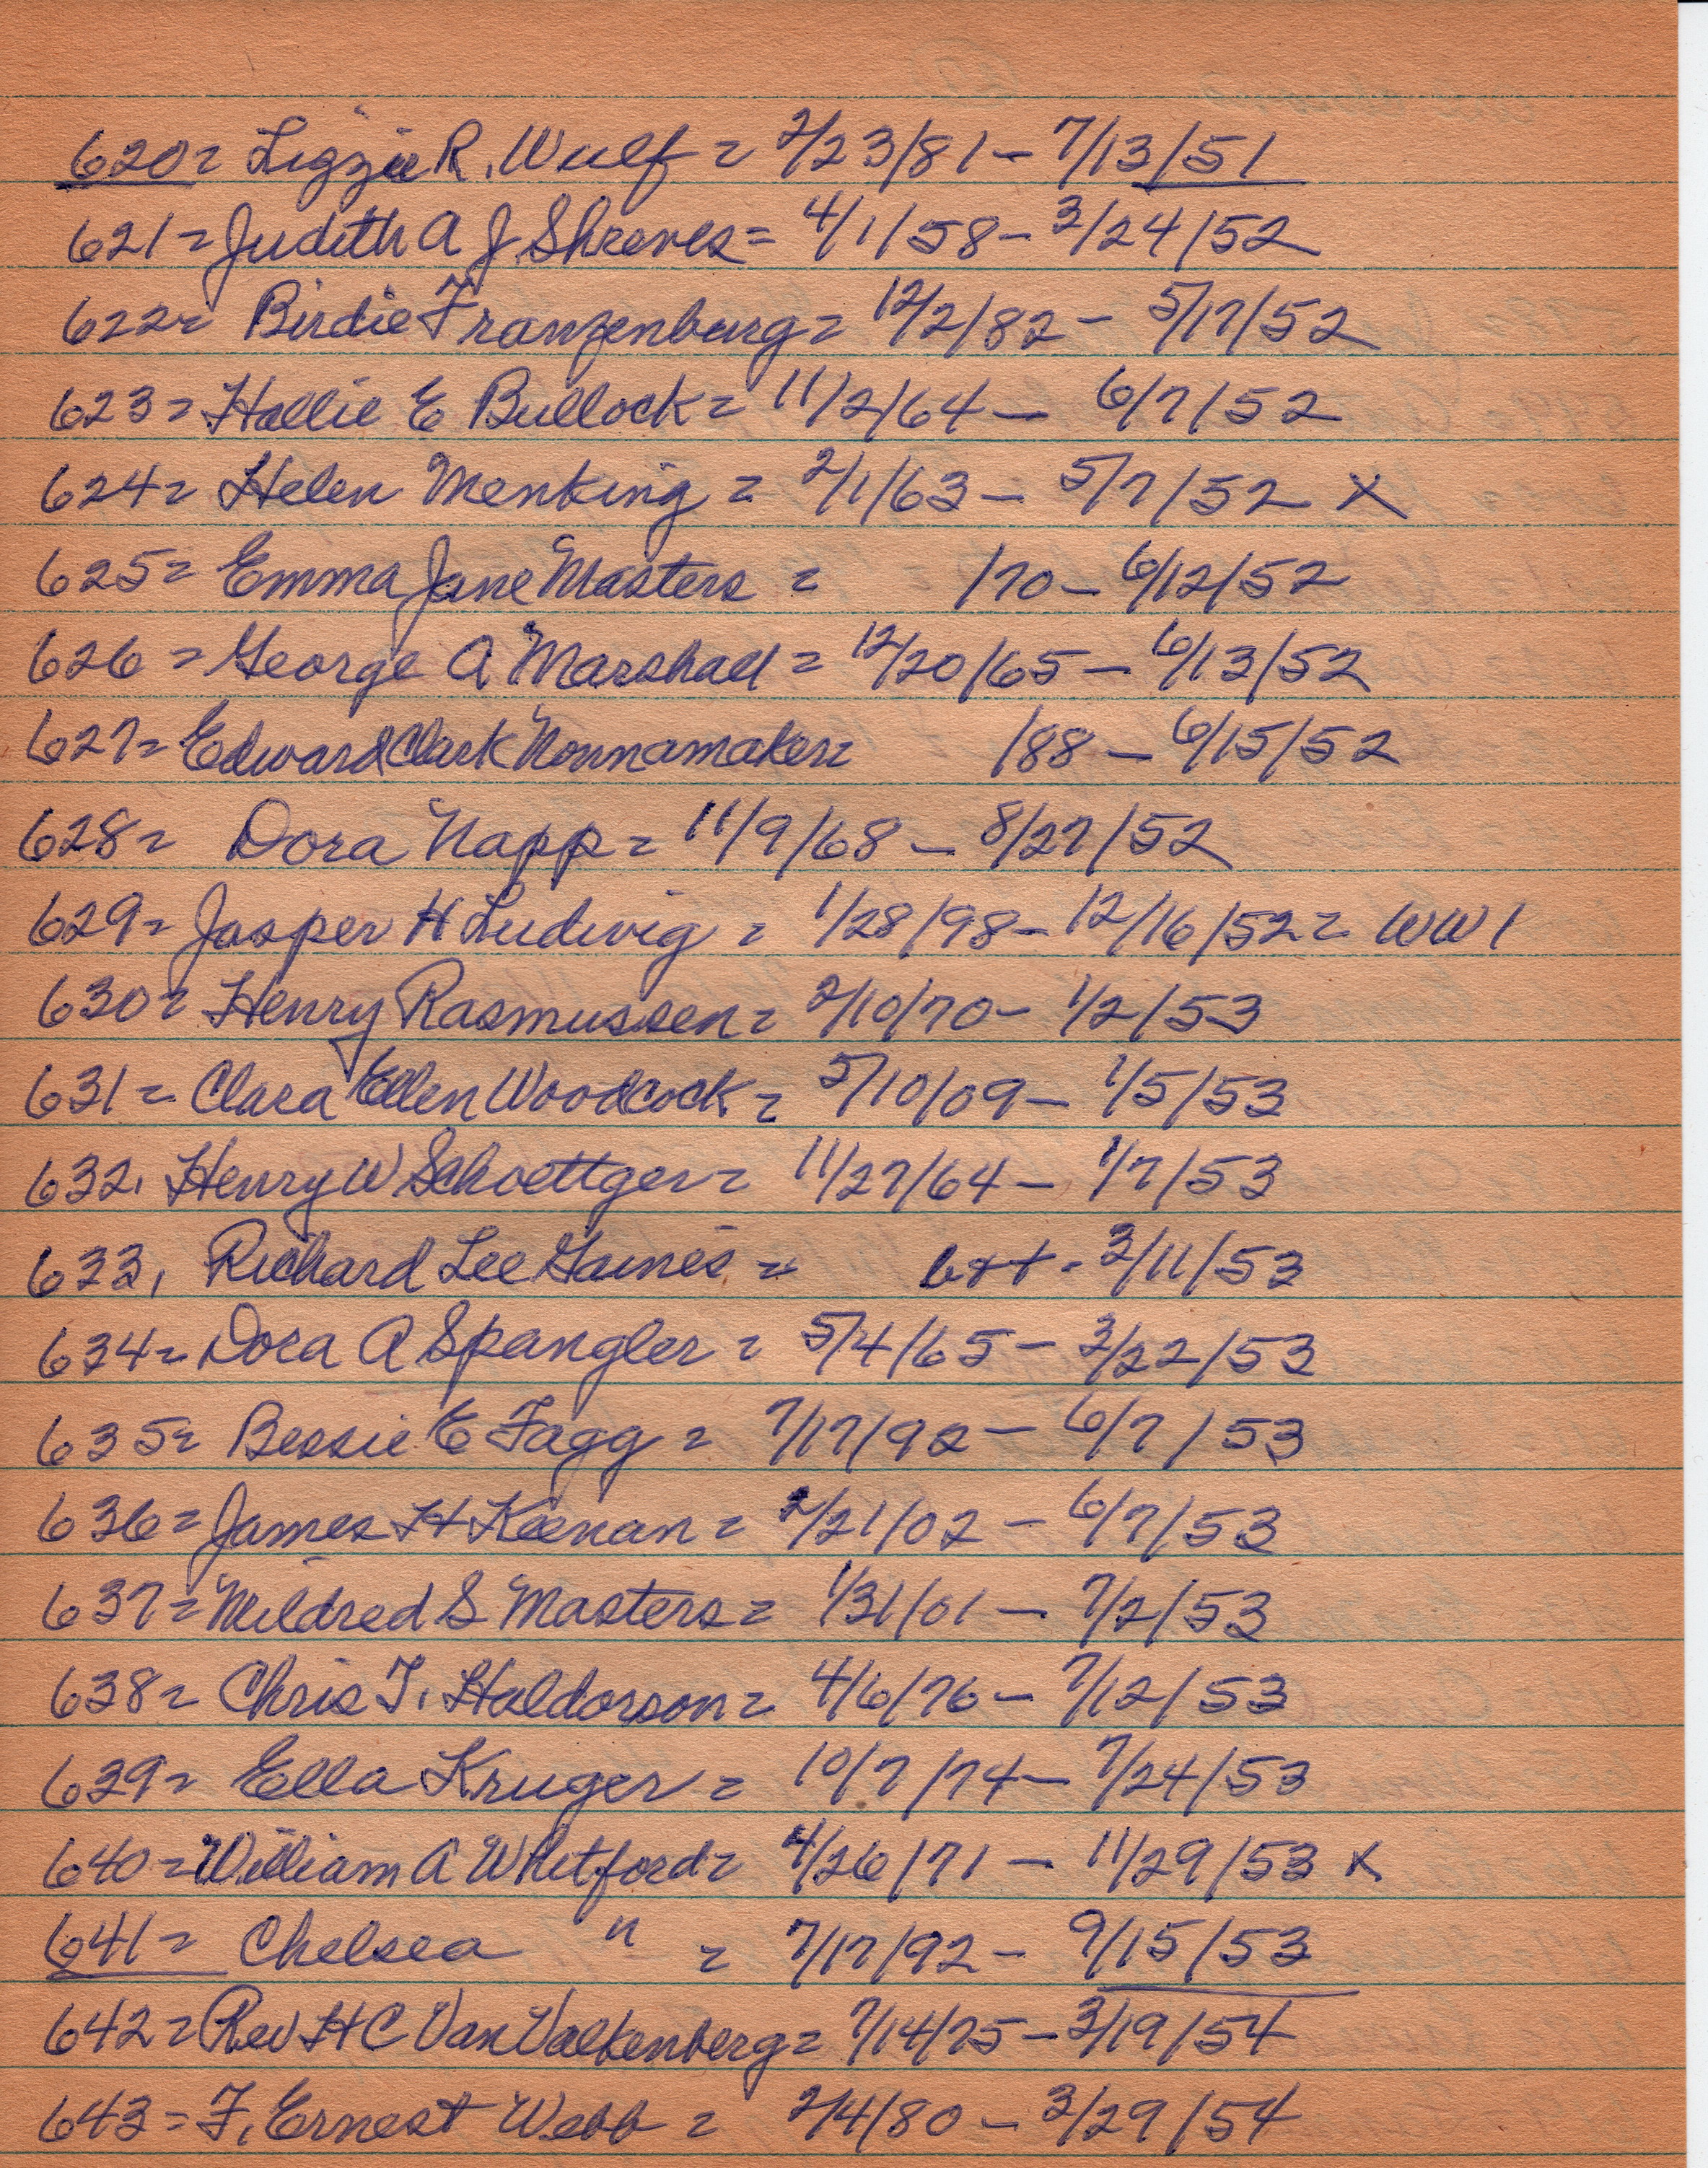 620= Lizzie R. Wulf = 2/23/81 - 7/13/51
621= Judith A J Shreves = 4/1/58 - 3/24/52
622= Birdie Franzenburg = 12/2/82 - 5/17/52
623= Hallie E Bullock = 11/2/64 - 6/7/52
624= Helen Menking = 2/1/63 - 5/7/52 X
625= Emma Jane Masters = /70 - 6/12/52
626= George A Marshall = 12/20/65 - 6/13/52
627= Edward Clark Nonnamaker= /88 - 6/15/52
628= Dora Napp = 11/9/68 - 8/27/52
629= Jasper H Ludwig = 1/28/98 - 12/16/52 = WW1
630= Henry Rasmussen = 2/10/70 - 1/2/53
631= Clara Ellen Woodcock = 5/10/09 - 1/5/53
632. Henry W Schoettger = 11/27/64 - 1/7/53
633, Richard Lee Gaines = - 3/11/53
634= Dora A Spangler = 5/4/65 - 3/22/53
635= Bessie E Fagg = 7/17/92 - 6/7/53
636= James H Keenan = 2/21/02 - 6/7/53
637= Mildred S Masters = 1/31/01 - 7/2/53
638= Chris T. Haldorson = 4/6/76 - 7/12/53
639= Ella Kruger = 10/7/74 - 7/24/53
640= William A Whitford = 4/26/71 - 11/29/53 X
641= Chelsea " = 7/17/92 - 9/15/53
642= Rev H C Van Valkenberg = 7/14/75 - 3/19/54
643= F. Ernest Webb = 2/4/80 - 3/29/54